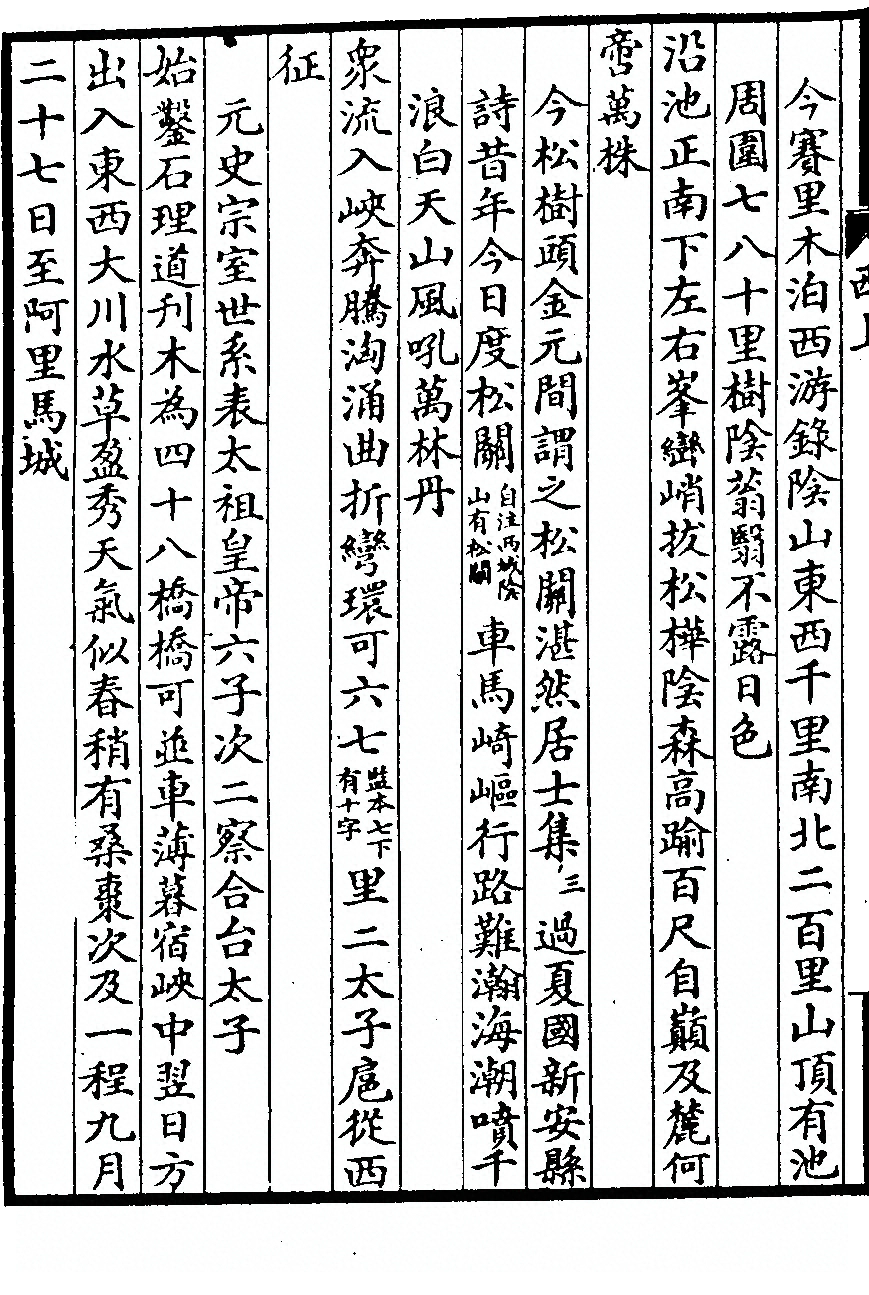 今賽里木泊西游錄陰山東西千里南北二百里山頂有池
周圍七八十里樹陰蓊翳不露日色
沿池正南下左右峯巒峭拔松樺陰森高踰百尺自巔及麓何
啻萬株
今松樹頭金元間謂之松關湛然居士集三過夏國新安縣
詩昔年今日度松關自注西域陰山有松關車馬崎嶇行路難瀚海潮噴千
浪白天山風吼萬林丹
衆流入峽奔騰洶涌曲折彎環可六七監本七下有十字里二太子扈從西
征
元史宗室世系表太祖皇帝六子次二察合台太子
始鑿石理道刋木為四十八橋橋可並車薄暮宿峽中翌日方
出入東西大川水草盈秀天氣似春稍有桑棗次及一程九月
二十七日至阿里馬城